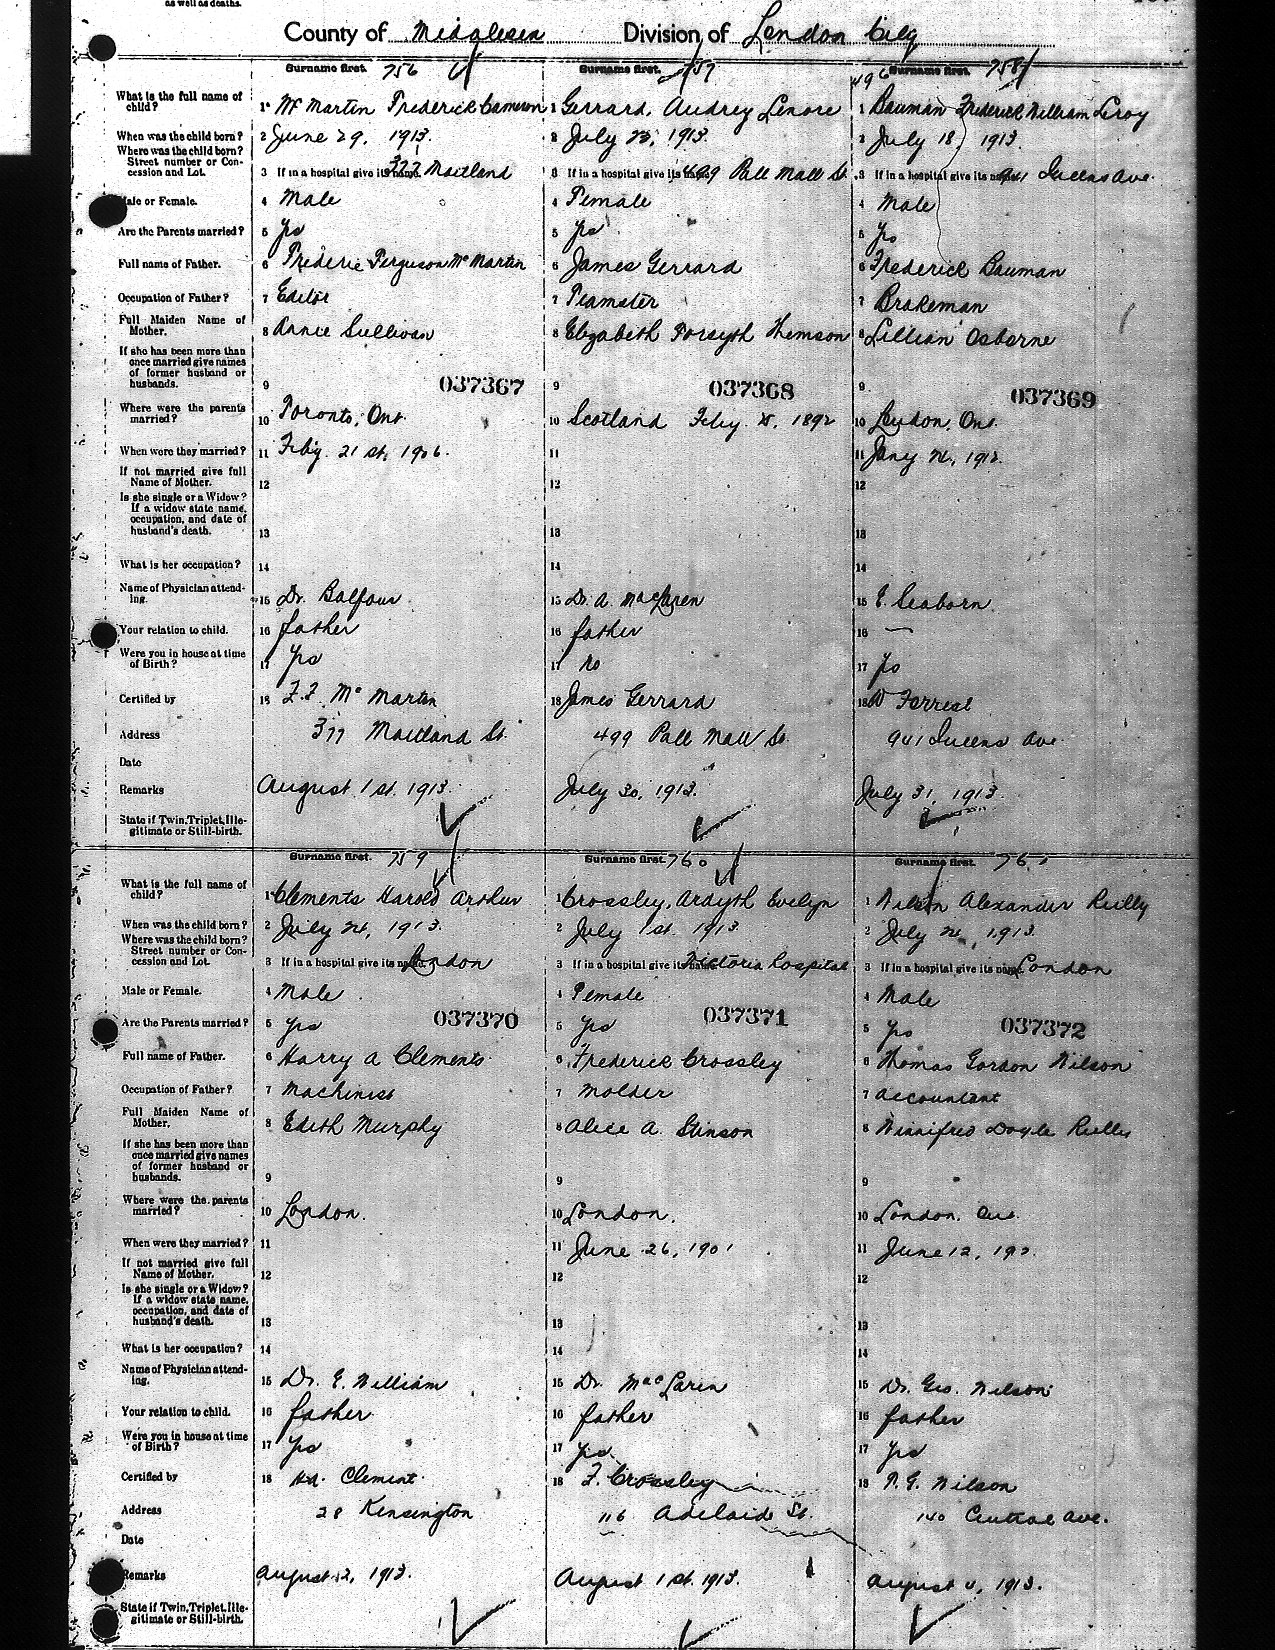 as well as deaths.
County of Middlesex Division of London City
Surname first. 756
Surname first. 757
496 Surname first. 758
What is the full name of child?
1 McMartin Frederick Cameron
1 Gerrard, Audrey Lenore
1 Bauman Frederick William Leroy
When was the child born?
2 June 29, 1913.
2 July 23, 1913.
2 July 18, 1913.
Where was the child born? Street number or Concession and Lot.
3 If in a hospital give its name. 377 Maitland
3 If in a hospital give its name. 499 Pall Mall St.
3 If in a hospital give its name. 941 Queens Ave.
Male or Female.
4 Male
4 Female
4 Male
Are the Parents married?
5 yes
5 yes
5 yes
Full name of Father.
6 Frederic Ferguson McMartin
6 James Gerrard
6 Frederick Bauman
Occupation of Father?
7 Editor
7 Teamster
7 Brakeman
Full Maiden Name of Mother.
8 Annie Sullivan
8 Elizabeth Forsyth Thomson
8 Lillian Osborne
If she has been more than once married give names of former husband or husbands.
9 037367
9 037368
9 037369
Where were the parents married?
10 Toronto, Ont.
10 Scotland Feby. 1892
10 London, Ont.
When were they married?
11 Feby. 21 st, 1906.
11
11 Jany 1912.
If not married give full Name of Mother.
12
12
12
Is she single or a Widow? If a widow state name, occupation, and date of husband's death.
13
13
13
What is her occupation?
14
14
14
Name of Physician attending.
15 Dr. Balfour
15 Dr. A. MacLaren
15 E. Seaborn
Your relation to child.
16 father
16 father
16 —
Were you in house at time of Birth?
17 yes
17 no
17 yes
Certified by
18 F.F. McMartin
18 James Gerrard
18 W Forrest
Address
377 Maitland St.
499 Pall Mall St.
941 Queens Ave.
Date
Remarks
August 1 st. 1913.
July 30, 1913.
July 31, 1913.
State if Twin, Triplet, Illegitimate or Still-birth.
Surname first. 759
Surname first. 760
Surname first. 761
What is the full name of child?
1 Clements Harold Arthur
1 Crossley, Ardyth Evelyn
1 Wilson Alexander Reilly
When was the child born?
2 July 1913.
2 July 1 st. 1913.
2 July 1913.
Where was the child born? Street number or Concession and Lot.
3 If in a hospital give its name. London
3 If in a hospital give its name. Victoria Hospital
3 If in a hospital give its name. London
Male or Female.
4 Male
4 Female
4 Male
Are the Parents married?
5 yes 037370
5 yes 037371
5 yes 037372
Full name of Father.
6 Harry A Clements
6 Frederick Crossley
6 Thomas Gordon Wilson
Occupation of Father?
7 Machinist
7 Molder
7 accountant
Full Maiden Name of Mother.
8 Edith Murphy
8 Alice A. Stinson
8 Winnifred Doyle Reilly
If she has been more than once married give names of former husband or husbands.
9
9
9
Where were the parents married?
10 London.
10 London.
10 London, Ont.
When were they married?
11
11 June 26, 1901
11 June 12,
If not married give full Name of Mother.
12
12
12
Is she single or a Widow? If a widow state name, occupation, and date of husband's death.
13
13
13
What is her occupation?
14
14
14
Name of Physician attending.
15 Dr. E. William
15 Dr. MacLaren
15 Dr. Geo. Wilson
Your relation to child.
16 father
16 father
16 father
Were you in house at time of Birth?
17 yes
17 yes
17 yes
Certified by
18 H.A. Clement
18 F. Crossley
18 T. G. Wilson
Address
28 Kensington
116 Adelaide St.
140 Central Ave.
Date
Remarks
August 2, 1913.
August 1 st. 1913.
August 1913.
State if Twin, Triplet, Illegitimate or Still-birth.